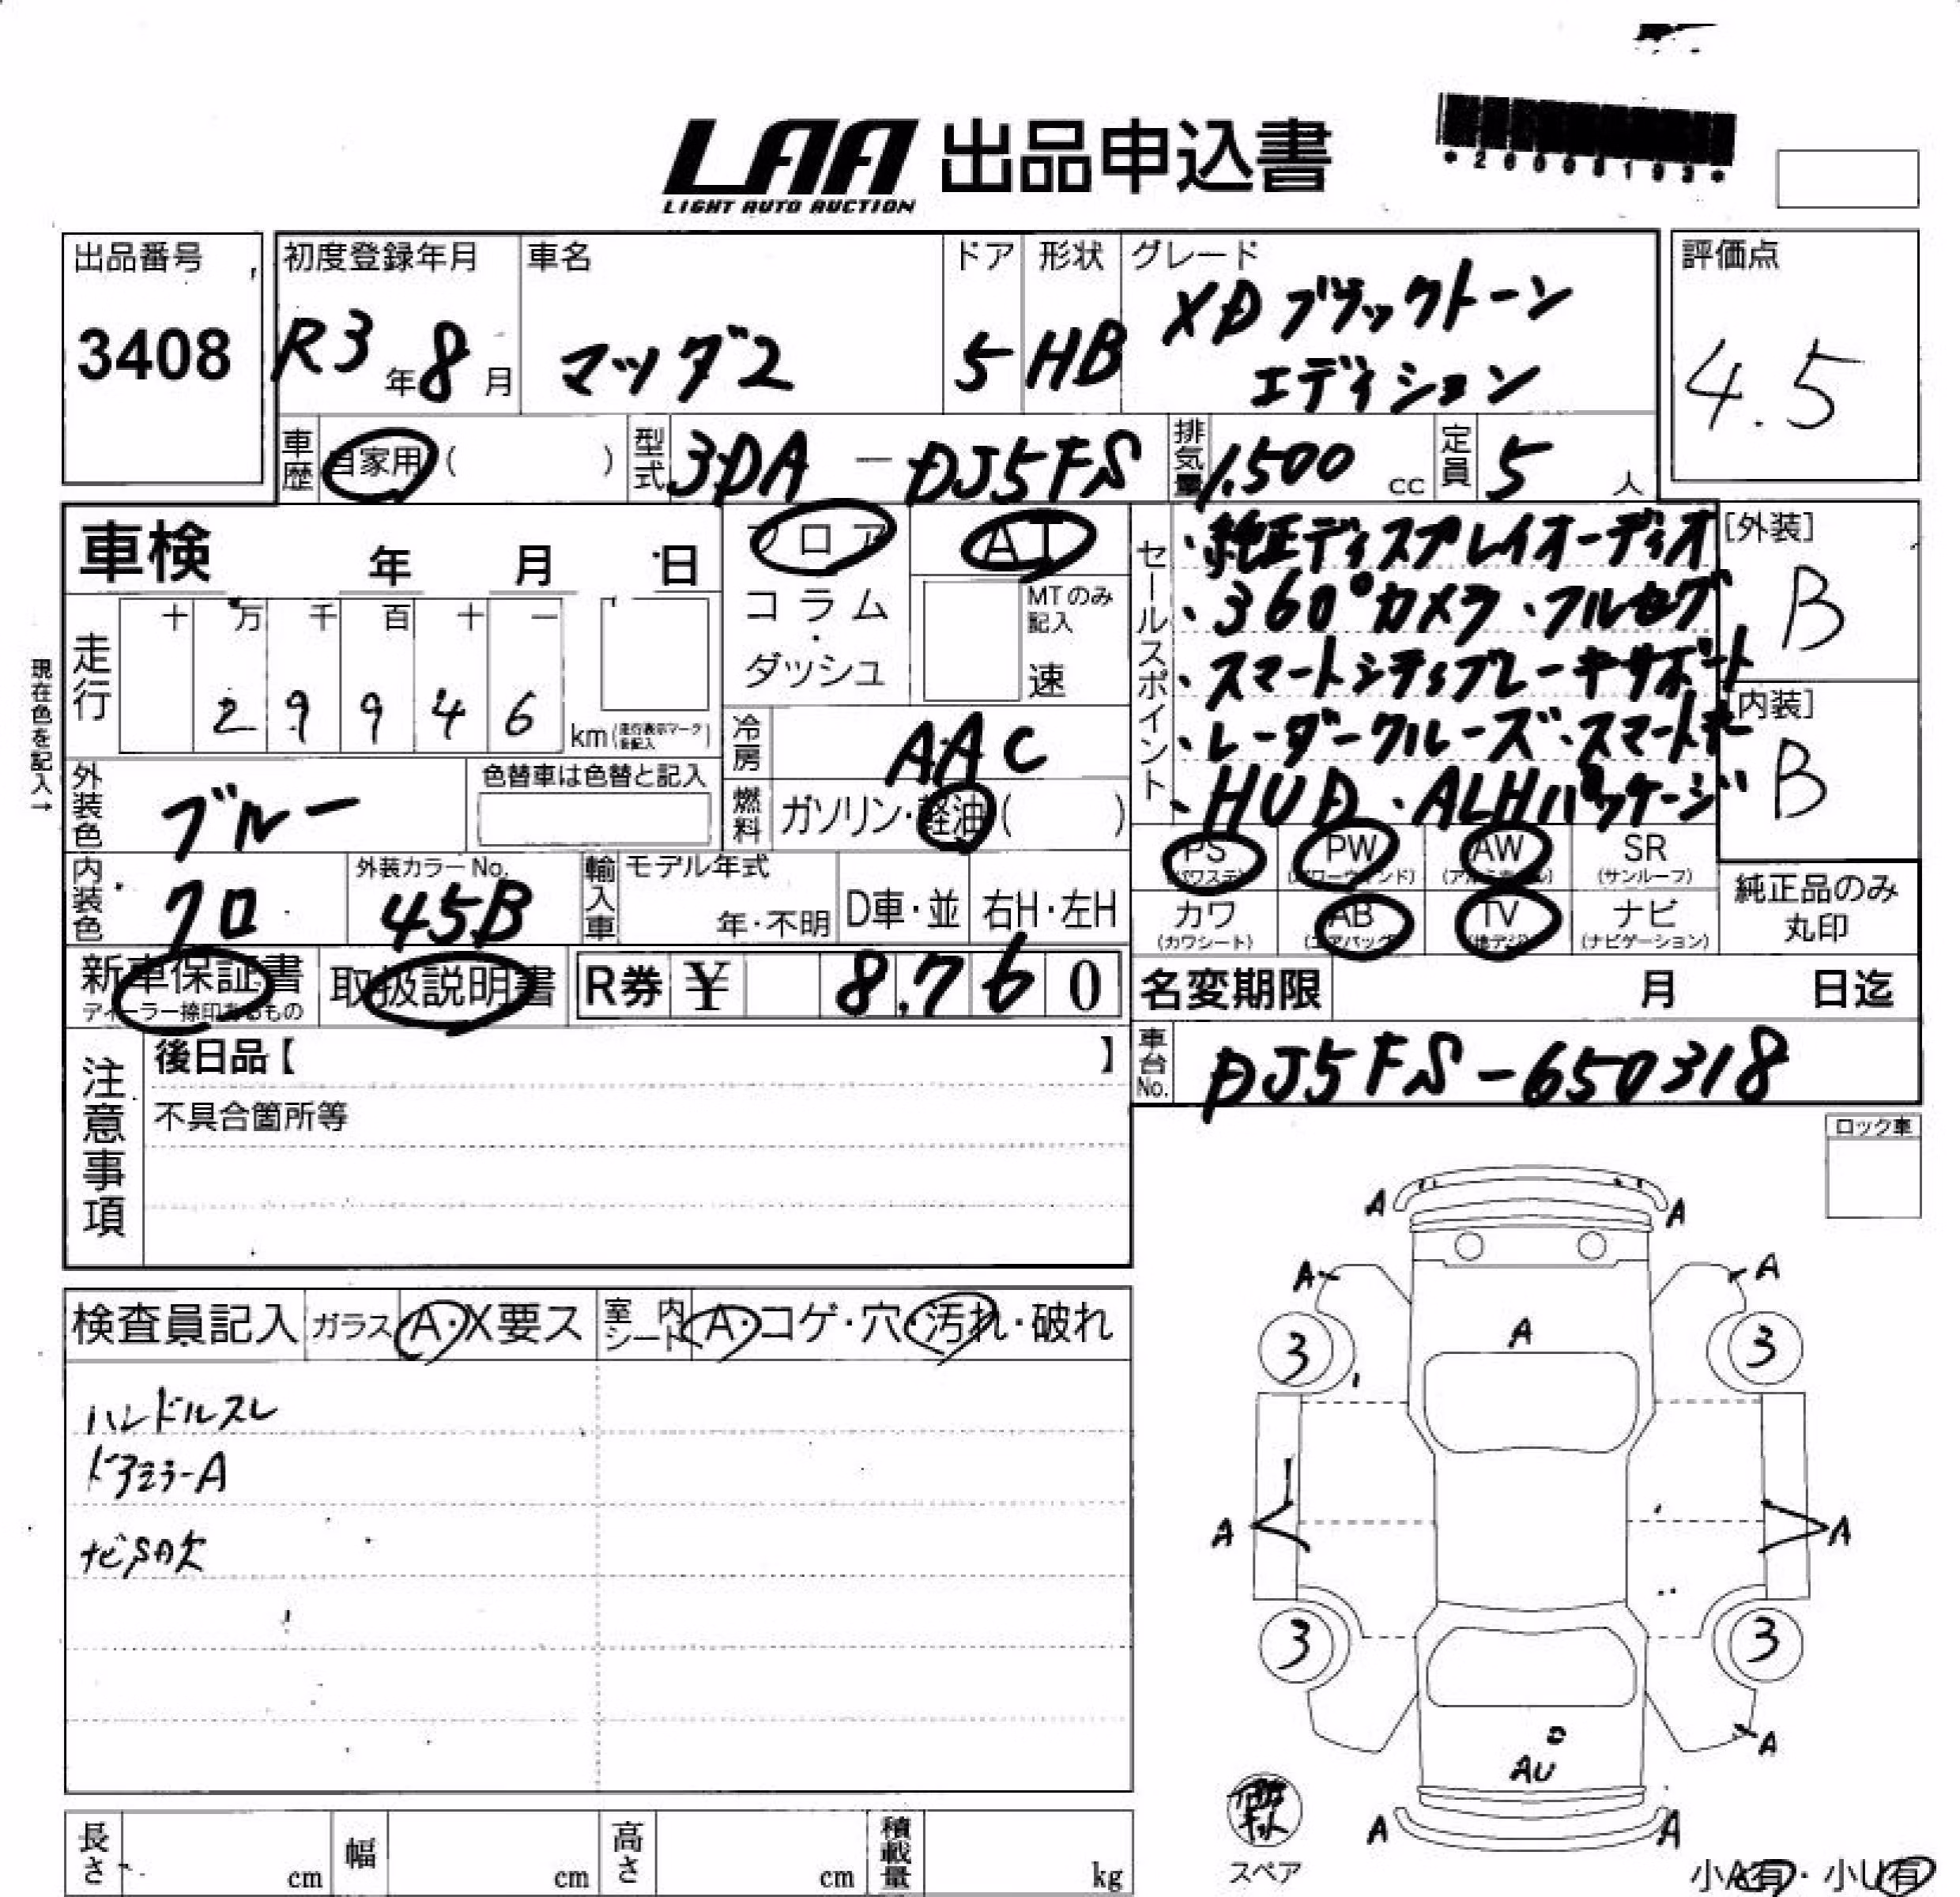 LAA 出品申込書
LIGHT AUTO AUCTION
*26008193*
出品番号
3408
初度登録年月
R3年8月
車名
マツダ2
ドア
5
形状
HB
グレード
XDブラックトーン
エディション
評価点
4.5
車歴
自家用( )
型式
3DA-DJ5FS
排気量
1,500 cc
定員
5 人
車検 年 月 日
フロア
コラム・ダッシュ
AT
MTのみ記入
速
走行
十 万 千 百 十 一
2 9 9 4 6
km(走行表示マークを記入)
現在色を記入→
冷房
AAC
外装色
ブルー
色替車は色替と記入
燃料
ガソリン・軽油( )
内装色
クロ
外装カラーNo.
45B
輸入車
モデル年式
年・不明
D車・並
右H・左H
新車保証書
ディーラー捺印あるもの
取扱説明書
R券 ¥ 8,760
セールスポイント
・純正ディスプレイオーディオ
・360°カメラ・フルセグ
・スマートシティブレーキサポート
・レーダークルーズ・スマートキー
・HUD・ALHパッケージ
[外装]
B
[内装]
B
PS
(パワステ)
PW
(パワーウィンド)
AW
(アルミホイール)
SR
(サンルーフ)
カワ
(カワシート)
AB
(エアバッグ)
TV
(地デジ)
ナビ
(ナビゲーション)
純正品のみ
丸印
名変期限 月 日迄
車台No.
DJ5FS-650318
注意事項
後日品【 】
不具合箇所等
ロック車
検査員記入
ガラス
A・X要ス
室内シート
A・コゲ・穴・汚れ・破れ
ハンドルスレ
ドアミラーA
ナビSD欠
A A
A A
A
3 3
A A
3 3
A
AU
A A
スペア
小A有・小U有
長さ cm
幅 cm
高さ cm
積載量 kg